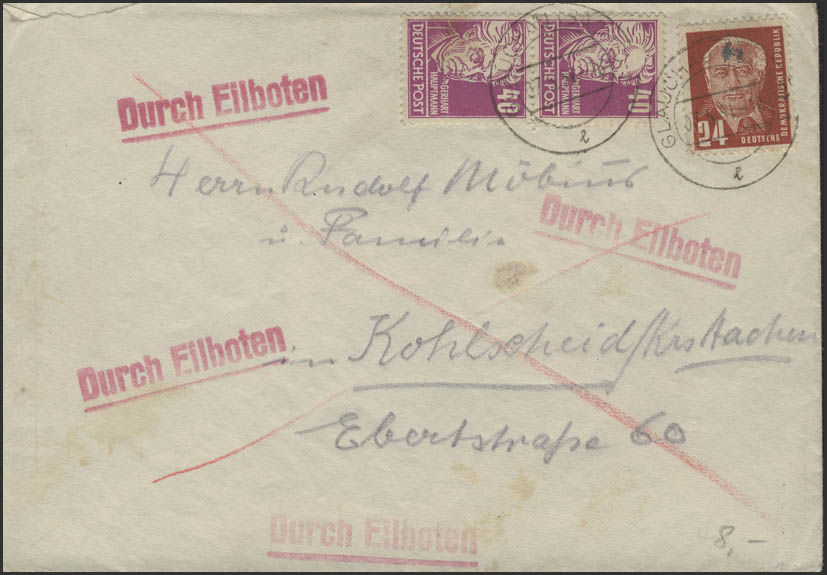 Durch Eilboten
DEUTSCHE POST
GERHART
HAUPTMANN
40
DEUTSCHE POST
GERHART
HAUPTMANN
40
24
DEUTSCHE
DEMOKRATISCHE REPUBLIK
GLAUCH
Herrn Rudolf Möbius
u. Familie
Durch Eilboten
Durch Eilboten
in Kohlscheid/Krs Aachen
Ebertstraße 60
Durch Eilboten
8,-